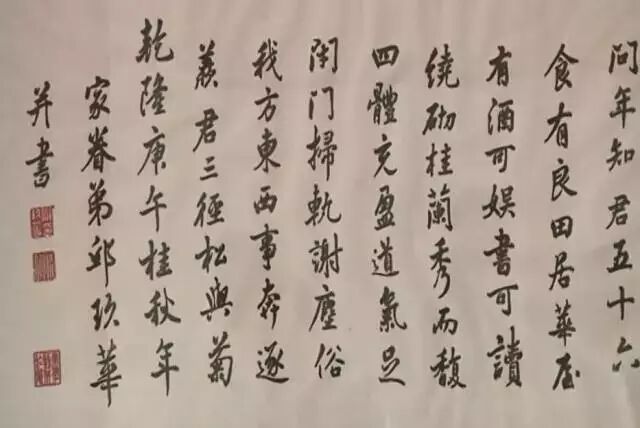 问年知君五十六
食有良田居華屋
有酒可娱書可讀
繞砌桂蘭秀而馥
四體充盈道氣足
闭门掃軌謝塵俗
我方東西事奔逐
羨君三徑松與菊
乾隆庚午桂秋年
家眷弟邱玖華
并書